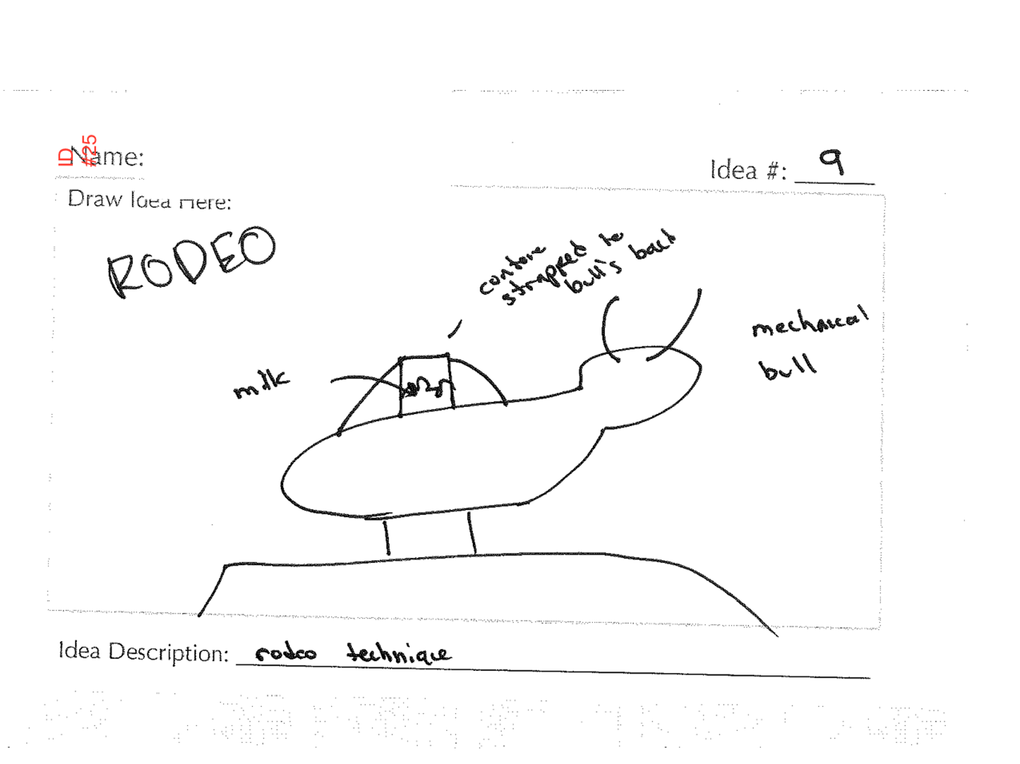 ID #25
Name:
Idea #: 9
Draw Idea Here:
RODEO
strapped to
bull's back
mechnical
bull
milk
Idea Description: rodeo technique